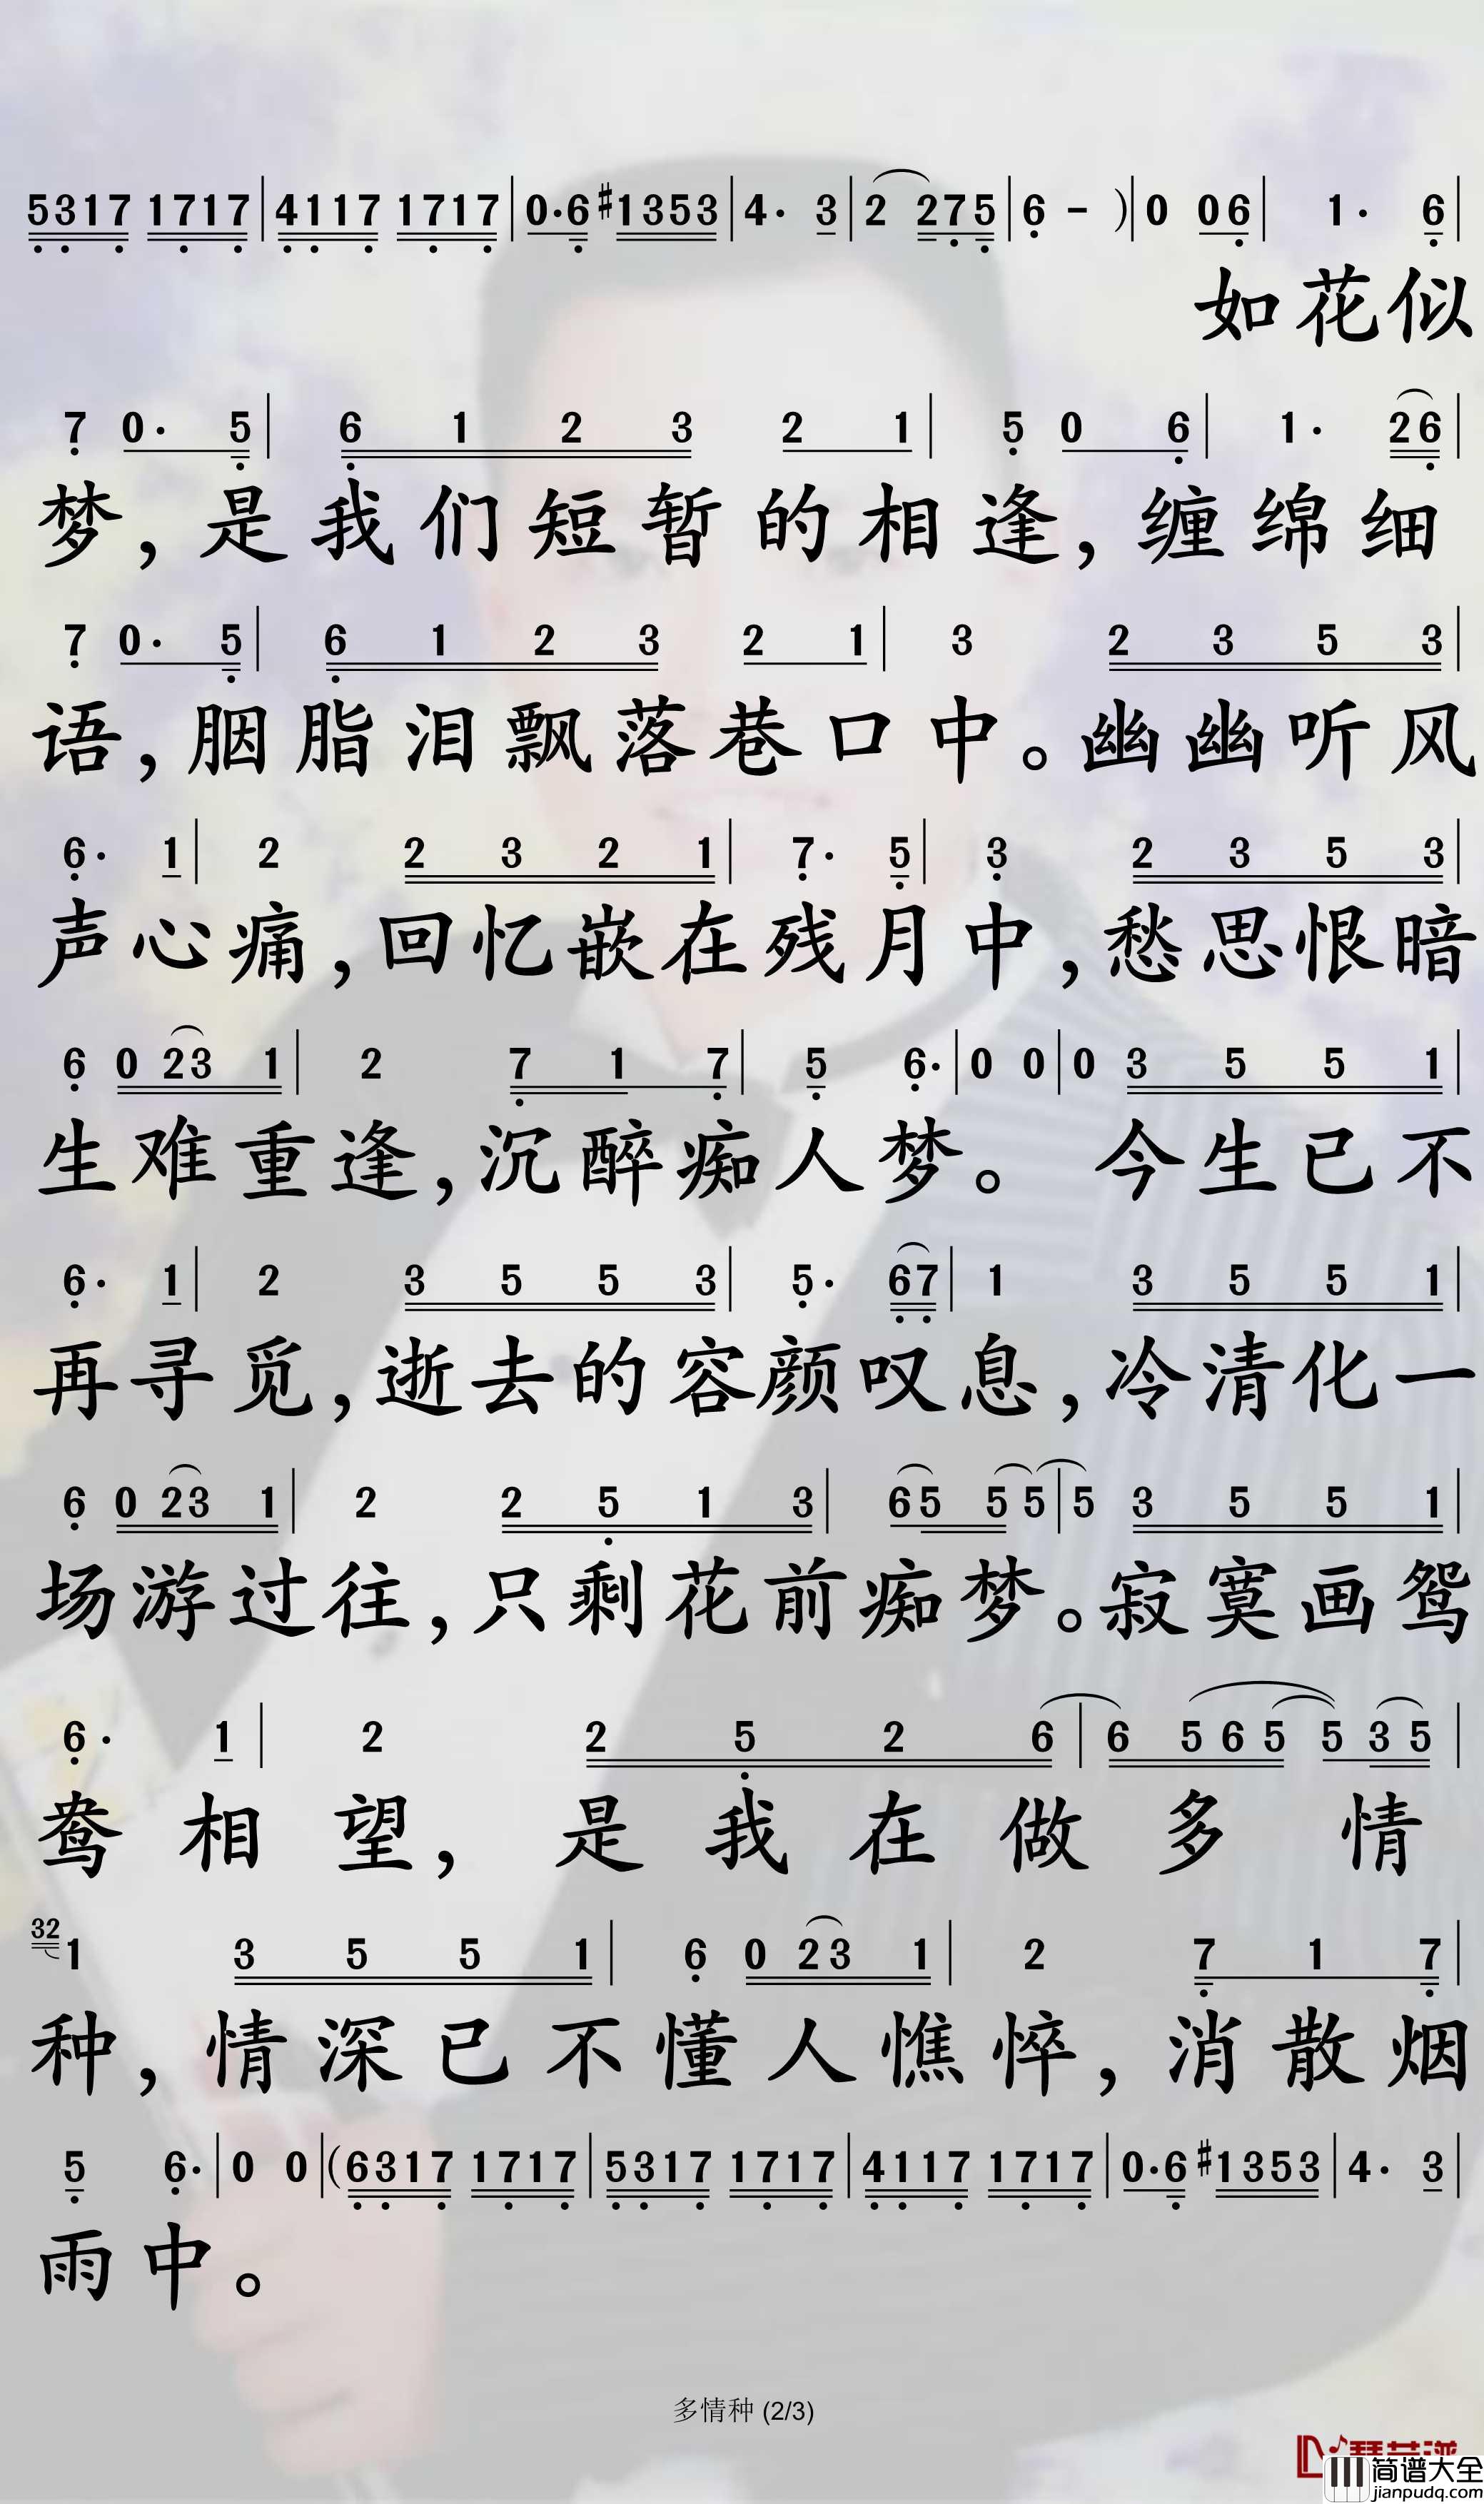 5317 1717 | 4117 1717 | 0·6 #1353 | 4· 3 | 2 275 | 6 - ) | 0 06 | 1· 6 |
如花似
7 0· 5 | 6 1 2 3 2 1 | 5 0 6 | 1· 26 |
梦，是我们短暂的相逢，缠绵细
7 0· 5 | 6 1 2 3 2 1 | 3 2 3 5 3 |
语，胭脂泪飘落巷口中。幽幽听风
6· 1 | 2 2 3 2 1 | 7· 5 | 3 2 3 5 3 |
声心痛，回忆嵌在残月中，愁思恨暗
6 0 23 1 | 2 7 1 7 | 5 6· | 0 0 | 0 3 5 5 1 |
生难重逢，沉醉痴人梦。今生已不
6· 1 | 2 3 5 5 3 | 5· 67 | 1 3 5 5 1 |
再寻觅，逝去的容颜叹息，冷清化一
6 0 23 1 | 2 2 5 1 3 | 65 5 5 | 5 3 5 5 1 |
场游过往，只剩花前痴梦。寂寞画鸳
6· 1 | 2 2 5 2 6 | 6 5 6 5 5 3 5 |
鸯相望，是我在做多情
32 1 3 5 5 1 | 6 0 23 1 | 2 7 1 7 |
种，情深已不懂人憔悴，消散烟
5 6· | 0 0 | ( 6317 1717 | 5317 1717 | 4117 1717 | 0·6 #1353 | 4· 3 |
雨中。
多情种 (2/3)
简谱大全
jianpudq.com